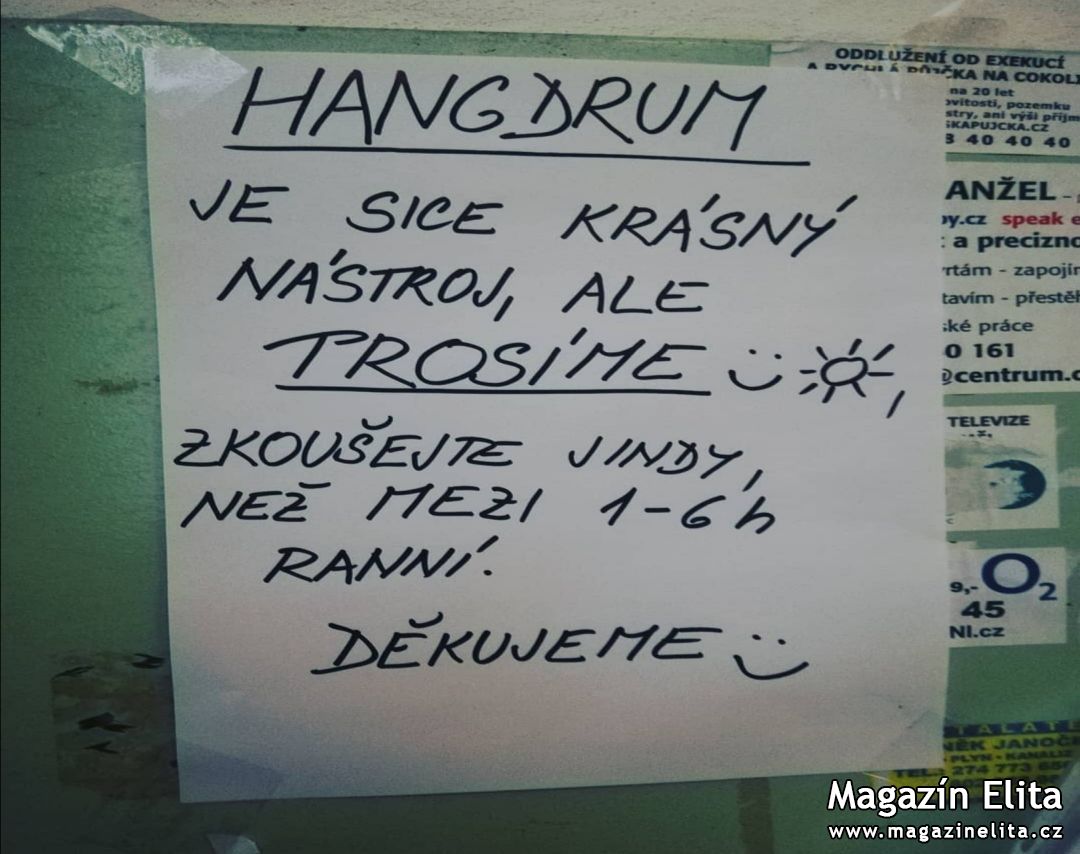 HANGDRUM
JE SICE KRÁSNÝ
NÁSTROJ, ALE
PROSÍME
ZKOUŠEJTE JINDY,
NEŽ MEZI 1-6 h
RANNÍ.
DĚKUJEME
ODDLUŽENÍ OD EXEKUCÍ
A RYCHLÁ PŮJČKA NA COKOLI
na 20 let
ovitosti, pozemku
stry, ani výši příjm
SKAPUJCKA.CZ
8 40 40 40
ANŽEL
by.cz speak e
a precizno
vrtám - zapojím
tavím - přestěh
ské práce
0 161
@centrum.c
TELEVIZE
9,- O2
45
NI.cz
TALATÉ
NĚK JANOČ
PLYN - KANALIZ
TEL.: 274 773 68
Magazín Elita
www.magazinelita.cz